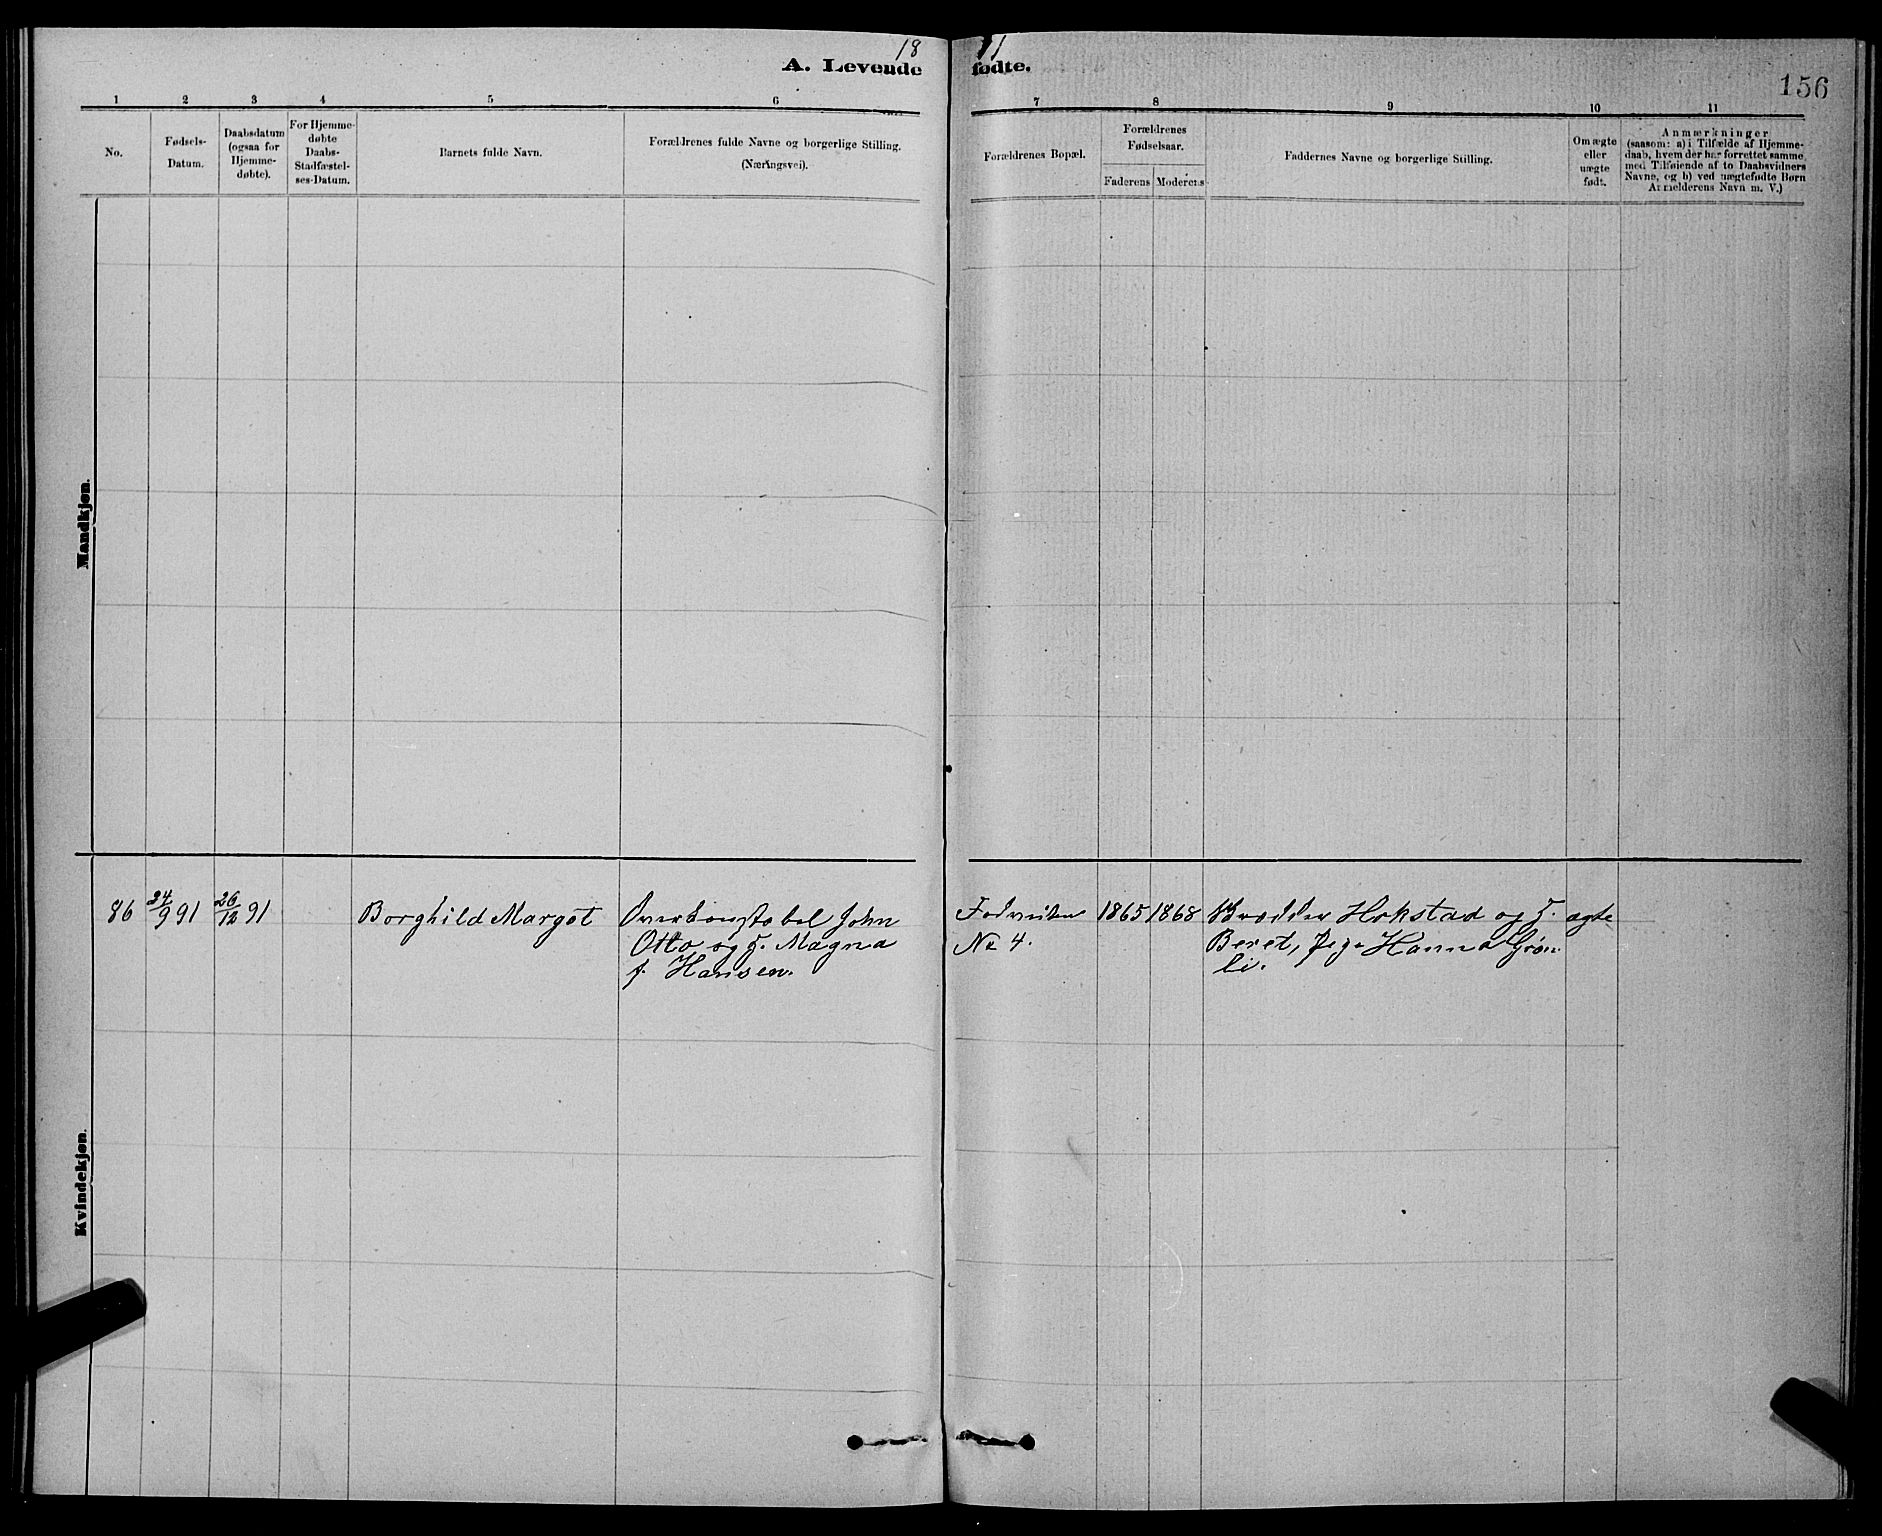 18 91
A. Levende fødte.
156
1 2 3 4 5 6 7 8 9 10 11
No.
Fødsels-
Datum.
Daabsdatum
(ogsaa for
Hjemme-
døbte).
For Hjemme-
døbte
Daabs-
Stadfæstel-
ses-Datum.
Barnets fulde Navn.
Forældrenes fulde Navne og borgerlige Stilling.
(Næringsvei).
Forældrenes Bopæl.
Forældrenes
Fødselsaar.
Faderens Moderens
Faddernes Navne og borgerlige Stilling.
Om ægte
eller
uægte
født.
Anmærkninger
(saasom: a) i Tilfælde af Hjemme-
daab, hvem der har forrettet samme,
med Tilføiende af to Daabsvidners
Navne, og b) ved uægtefødte Børn
Anmelderens Navn m. V.)
Mandkjøn.
Kvindekjøn.
86
24/9 91
26/12 91
Borghild Margot
Overkonstabel John
Otto og H. Magna
f. Hansen.
No 4.
1865 1868
Hokstad og H.
Beret, Pige Hanna Grøn
li.
ægte